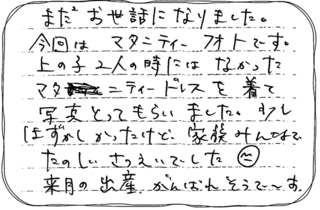 またお世話になりました。
今回は マタニティー フォトです。
上の子2人の時には なかった
マタニティードレスを着て
写真とってもらいました。少し
はずかしかったけど 家族みんなで
たのしいさつえいでした
来月の出産 がんばれそうで〜す。